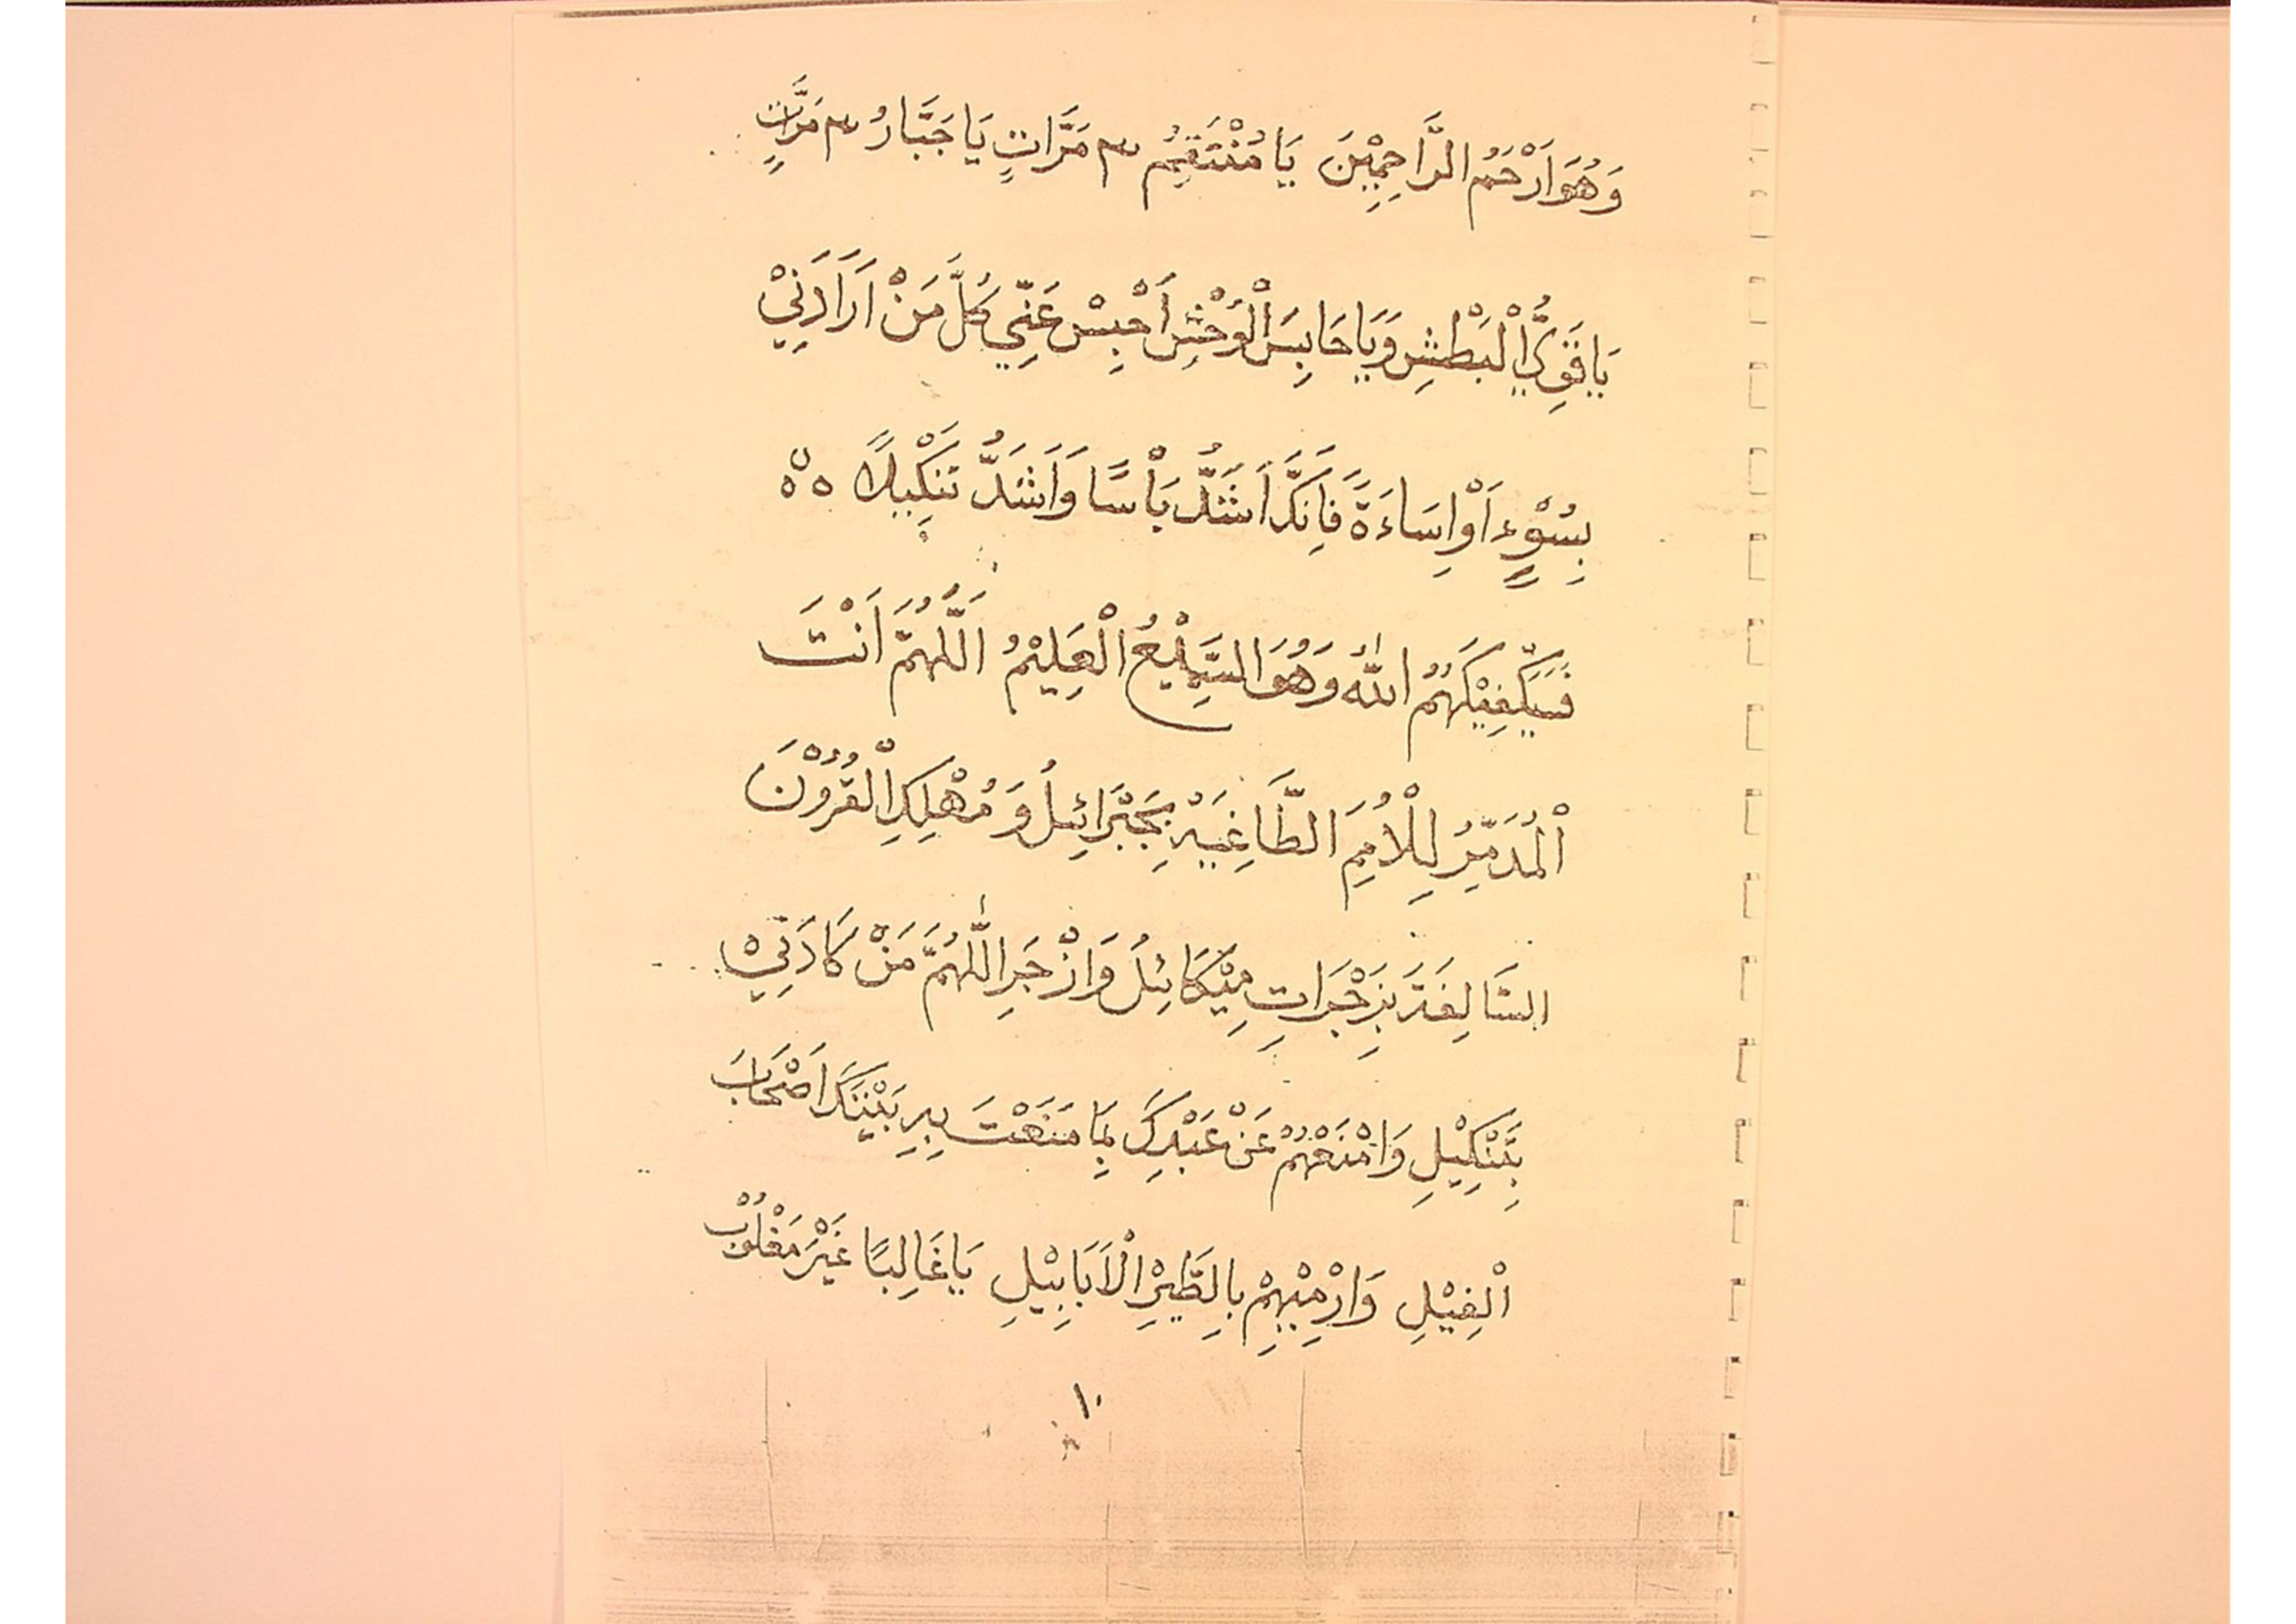 وَهُوَ اَرْحَمُ الرَّاحِمِيْنَ يَا مُنْتَقِمُ ٣ مَرَّاتٍ يَا جَبَّارُ ٣ مَرَّاتٍ
يَا قَوِيُّ الْبَطْشِ وَيَا حَابِسَ الْوُحْشِ اَحْبِسْ عَنِّي كُلَّ مَنْ اَرَادَنِيْ
بِسُوْءٍ اَوْ اِسَاءَةً فَاِنَّكَ اَشَدُّ بَأْسًا وَاَشَدُّ تَنْكِيْلًا
فَسَيَكْفِيْكَهُمُ اللّٰهُ وَهُوَ السَّمِيْعُ الْعَلِيْمُ اَللّٰهُمَّ اَنْتَ
اَلْمُدَمِّرُ لِلْاُمَمِ الطَّاغِيَةِ بِجَبْرَائِلُ وَ مُهْلِكِ الْقُرُوْنَ
السَّالِفَةَ بِزَجْرَاتِ مِيْكَائِلُ وَازْجَرِ اللّٰهُمَّ مَنْ كَادَنِيْ
بِتَنْكِيْلِ وَامْنَعْهُمْ عَنْ عَبْدِكَ بِمَا مَنَعْتَ بِهِ بَيْنَكَ اَصْحَابَ
الْفِيْلِ وَارْمِيْهِمْ بِالطَّيْرِ الْاَبَابِيْلِ يَا غَالِبًا غَيْرَ مَغْلُوْبْ
١٠